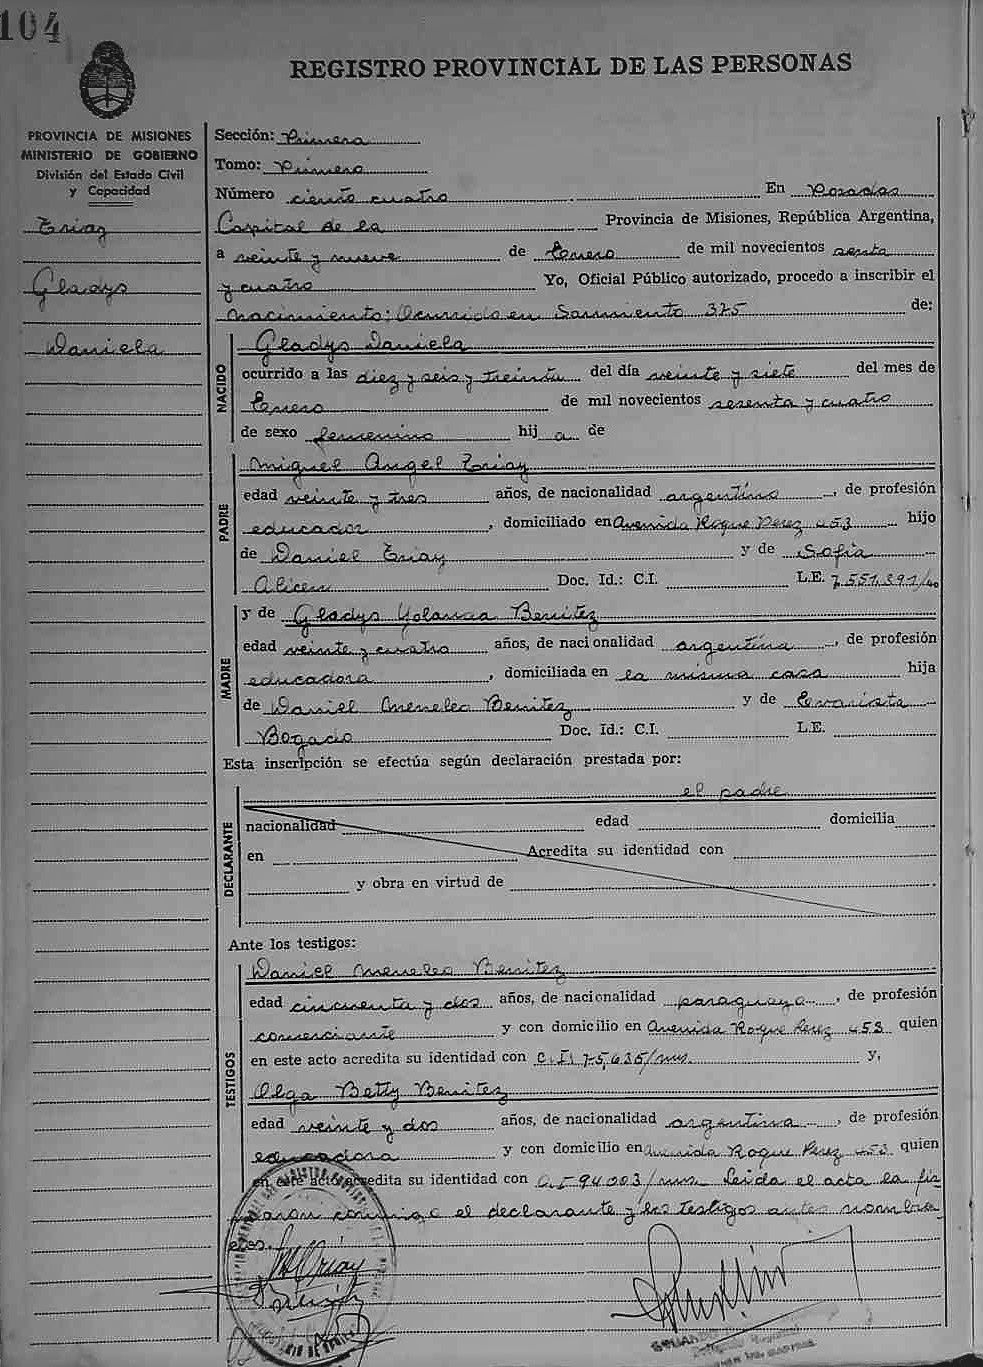 104
REGISTRO PROVINCIAL DE LAS PERSONAS
PROVINCIA DE MISIONES
MINISTERIO DE GOBIERNO
División del Estado Civil
y Capacidad
Triay
Gladys
Daniela
Sección: Primera
Tomo: Primero
Número ciento cuatro En Posadas
Capital de la Provincia de Misiones, República Argentina,
a veinte y nueve de Enero de mil novecientos senta
y cuatro Yo, Oficial Público autorizado, procedo a inscribir el
Nacimiento: Ocurrido en Sarmiento 375 de:
NACIDO
Gladys Daniela
ocurrido a las diez y seis y treinta del día veinte y siete del mes de
Enero de mil novecientos sesenta y cuatro
de sexo femenino hij a de
PADRE
Miguel Angel Triay
edad veinte y tres años, de nacionalidad argentino, de profesión
educador, domiciliado en Avenida Roque Perez 453 hijo
de Daniel Triay y de Sofia
Alicia Doc. Id.: C.I. L.E. 7.551.391/40
MADRE
y de Gladys Yolanda Benitez
edad veinte y cuatro años, de nacionalidad argentina, de profesión
educadora, domiciliada en la misma casa hija
de Daniel Meneleo Benitez y de Evarista
Bogado Doc. Id.: C.I. L.E.
Esta inscripción se efectúa según declaración prestada por:
DECLARANTE
el padre
nacionalidad edad domicilia
en Acredita su identidad con
y obra en virtud de
Ante los testigos:
TESTIGOS
Daniel Meneleo Benitez
edad cincuenta y dos años, de nacionalidad paraguaya, de profesión
comerciante y con domicilio en Avenida Roque Perez 453 quien
en este acto acredita su identidad con C.I. 75,635/mns. y,
Olga Betty Benitez
edad veinte y dos años, de nacionalidad argentina, de profesión
educadora y con domicilio en Avenida Roque Perez 453 quien
en este acto acredita su identidad con C.I 94003/mns. Leida el acta la fir
maron conmigo el declarante y los testigos antes nombra
dos.